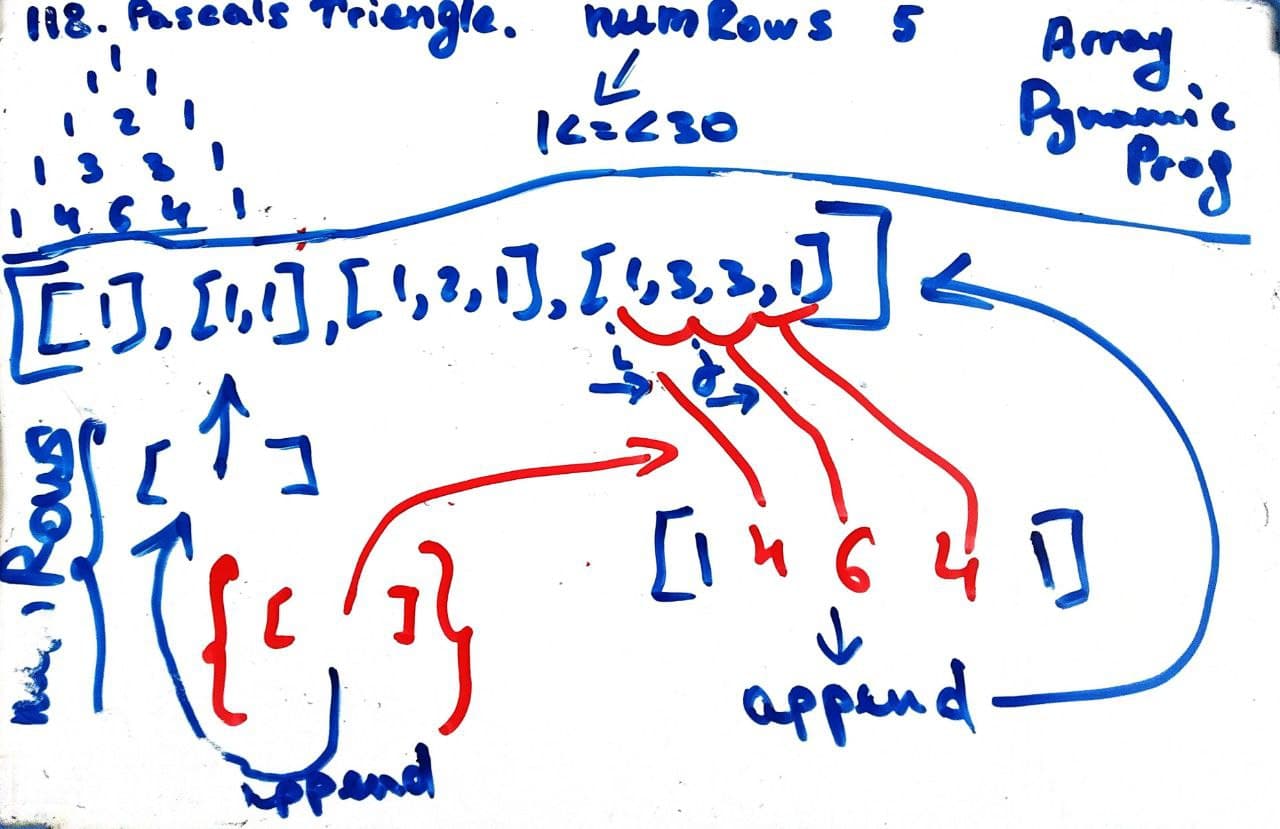 118. Pascals Triangle. numRows 5
Array
Dynamic
Prog
1<=<30
1
1 1
1 2 1
1 3 3 1
1 4 6 4 1
[[1], [1,1], [1,2,1], [1,3,3,1]]
i j
[ ]
Rows
{ [ ] }
[1 4 6 4 1]
append
append